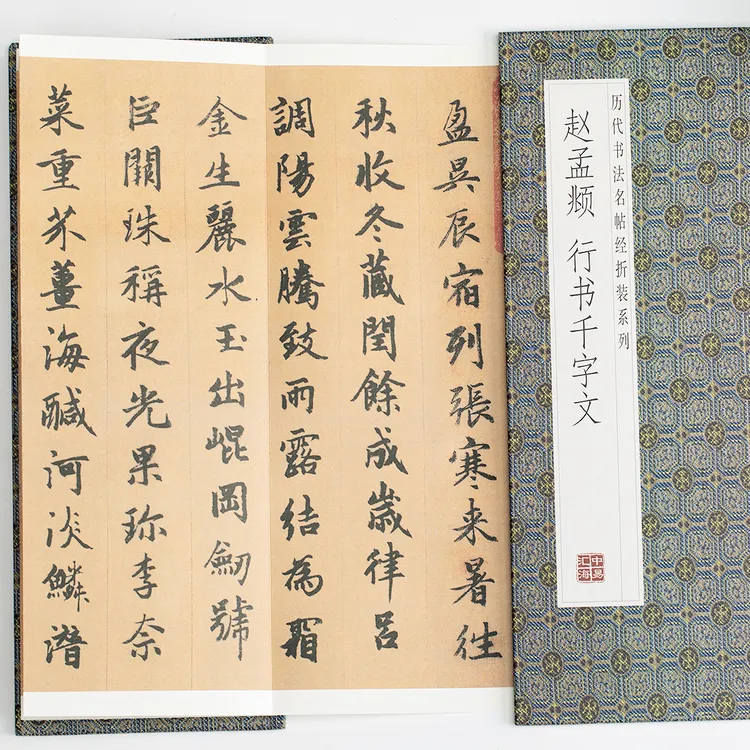 历代书法名帖经折装系列
赵孟𫖯 行书千字文
中易汇海
盈昃辰宿列張寒来暑往
秋收冬藏閏餘成歲律吕
調陽雲騰致雨露結為霜
金生麗水玉出崐岡劒號
巨闕珠稱夜光果珍李柰
菜重芥薑海鹹河淡鱗潛